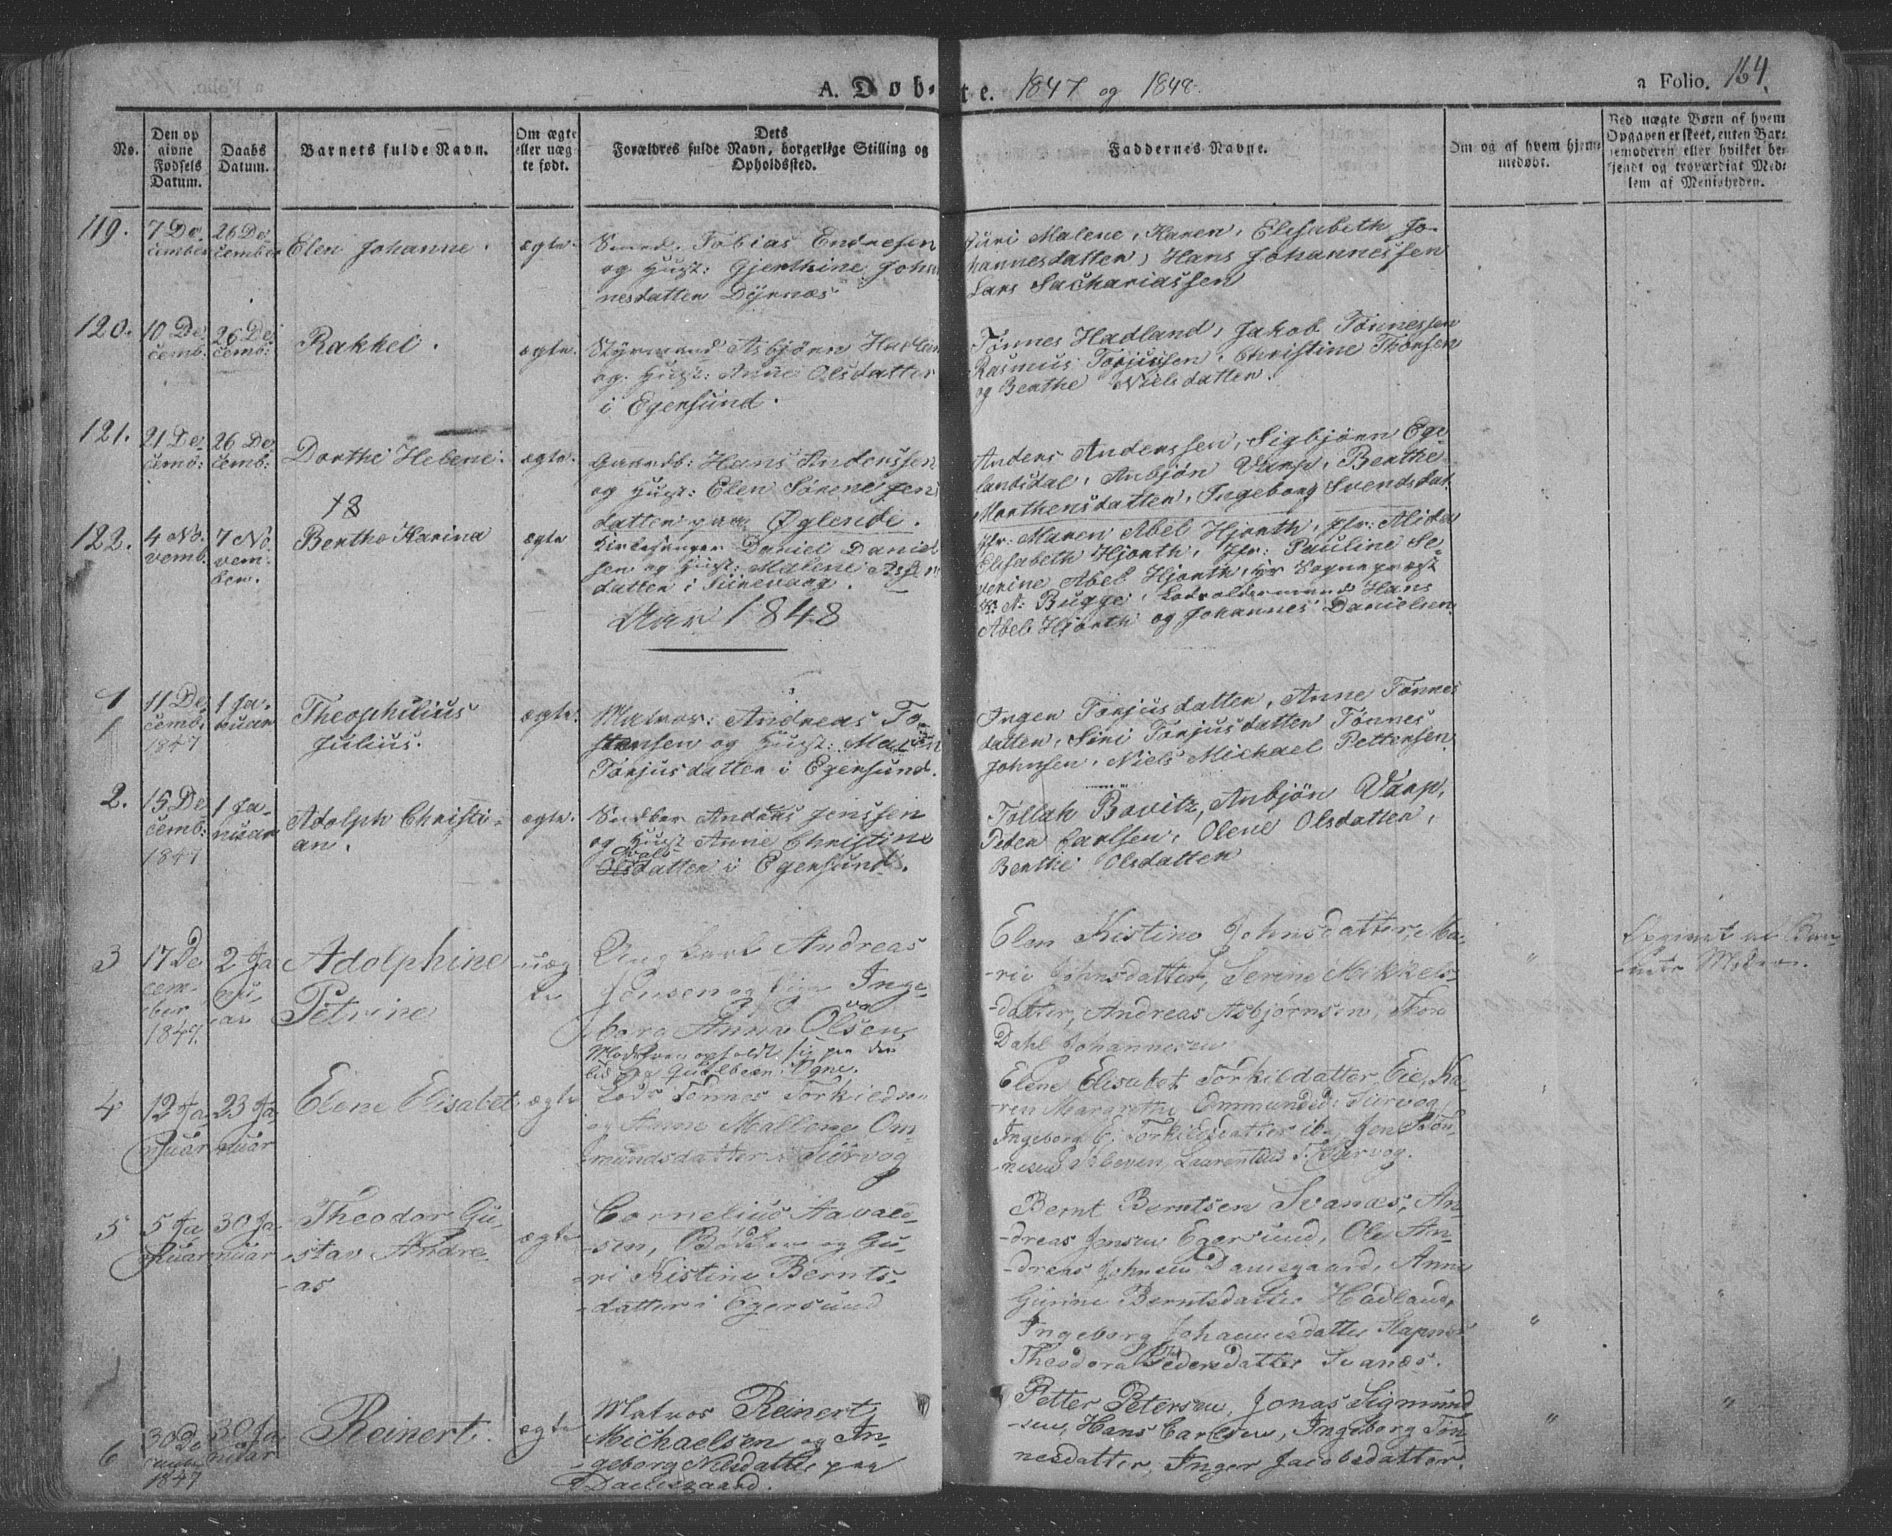 A. Døbte. 1847 og 1848.
a Folio. 164.
No.
Den op
givne
Fødsels
Datum.
Daabs
Datum.
Barnets fulde Navn.
Om ægte
eller uæg
te født.
Dets
Forældres fulde Navn, borgerlige Stilling og
Opholdssted.
Faddernes Navne.
Om og af hvem hjem-
medøbt.
Ved uægte Børn af hvem
Opgaven er skeet, enten Bar-
nemoderen eller hvilket be-
kjendt og troværdigt Med-
lem af Menigheden.
119.
7 De
cember
26 De
cember
Elen Johanne.
ægte.
Tobias Endresen
og Hust: Gjerthine Johan
nesdatter Dyrnæs
Siri Malene, Karen, Elisabeth Jo-
hannesdatter, Hans Johannessen
Lars Sachariassen
120.
10 De
cemb.
26 De
cemb:
Rakkel.
ægte.
Styrmand Asbjørn Hadlan
og Hust: Anne Olsdatter
i Egersund.
Tønnes Hadland, Jakob Tønnessen
Rasmus Torjussen, Christine Thorsen
og Berthe Nielsdatter.
121.
21 De
cemb:
26 De
cemb:
Dorthe Helene.
ægte.
Gaardb: Hans Anderssen
og Hust: Elen Sørene
datter paa Øglende.
Anders Anderssen, Sigbjørn Ege
landsdal, Anbjøn Vaap, Berthe
Morthensdatter, Ingeborg Svendsdat
18
122.
4 No
vemb.
7 No
vem-
ber.
Berthe Karina
ægte
Kirkesanger Daniel Daniel
sen og Hust: Malene
datter i Siirevaag.
Jfr: Maren Abel Hjorth, Jfr: Alida
Elisabeth Hjorth, Jfr: Pauline Se-
verine Abel Hjorth, Hr Sognepræst
Bugge, Lodsoldermand Hans
Abel Hjorth og Johannes Danielsen
Aar 1848
1
1
11 De
cemb.
1847
1 Ja-
nuar
Theophilius
Julius.
ægte.
Matros: Andreas To
stensen og Hust: Maren
Torjusdatter i Egersund.
Inger Torjusdatter, Anne Tønnes
datter, Siri Torjusdatter Tønnes
Johnsen, Niels Michael Pettersen
2.
15 De
cemb:
1847
1 Ja-
nuar
Adolph Christi-
an.
ægte.
Anders Jenssen
og Hust Anne Christine
datter i Egersund.
Tollak Bowitz, Anbjøn Vaap,
Peder Carlsen, Olene Olsdatter,
Berthe Olsdatter
3
17 De
cem-
ber
1847.
2 Ja
nu-
ar
Adolphine
Petrine
uæg
te
Ungkarl Andreas
Jensen og Pige Inge-
borg Anna Olsen,
Moderen opholdt sig paa den
tid paa Ogne.
Elen Kistine Johnsdatter, Ma-
rie Johnsdatter, Serine Mikkels-
datter, Andreas Asbjørnsen, Thor
Dahl Johannesen
Opgivet af Bar-
nets Moder.
4
12 Ja
nuar
23 Ja
nuar
Elene Elisabet
ægte
Lods Tønnes Torkieldsen
og Anne Mallene Om-
mundsdatter Siirvog
Elene Elisabet Torkildatter, Eie, Ka-
ren Margrethe Ommundsd: Siirvog,
Ingeborg E. Torkildsdatter ib., Jon Tøn-
nesen Laurentius T. Siirvog.
5
5 Ja
nuar
30 Ja-
nuar
Theodor Gu-
stav Andre-
as
ægte
Cornelius Aavald-
sen, Bødker og Gu-
ri Kistine Bernts-
datter i Egersund
Bernt Berntsen Svanæs, An-
dreas Jensen Egersund, Ole An-
dreas Johnsen Damsgaard, Anne
Gurine Berntsdatter Hadland,
Ingeborg Johannesdatter
Theodora Pedersdatter Svanæs.
6
30 De
cember
1847
30 Ja-
nuar
Reinert.
ægte
Matros Reinert
Michaelsen og In-
geborg Nilsdatter paa
Damsgaard.
Petter Petersen, Jonas Sigmund
sen, Hans Carlsen, Ingeborg Tøn-
nesdatter, Inger Jacobsdatter.